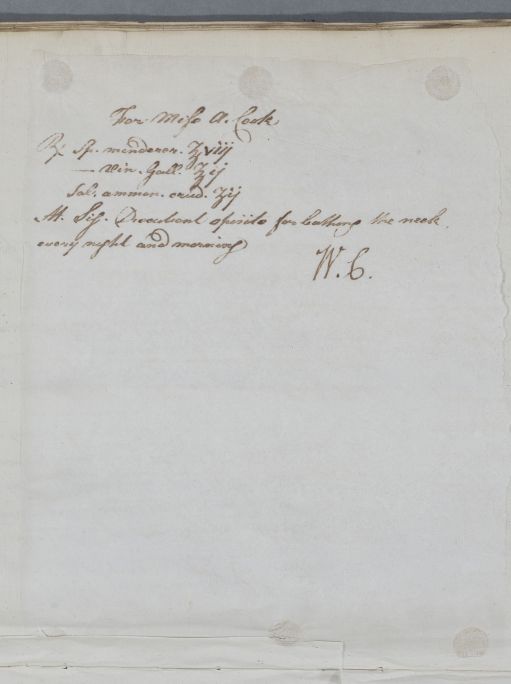 For Miss A. Cook
℞ Sp. minderer. ℥viij
— vin. Gall. ℥ij
Sal. ammon. crud. ʒij
M. Sig. Discutient spirits for bathing the neck
every night and morning
W. C.